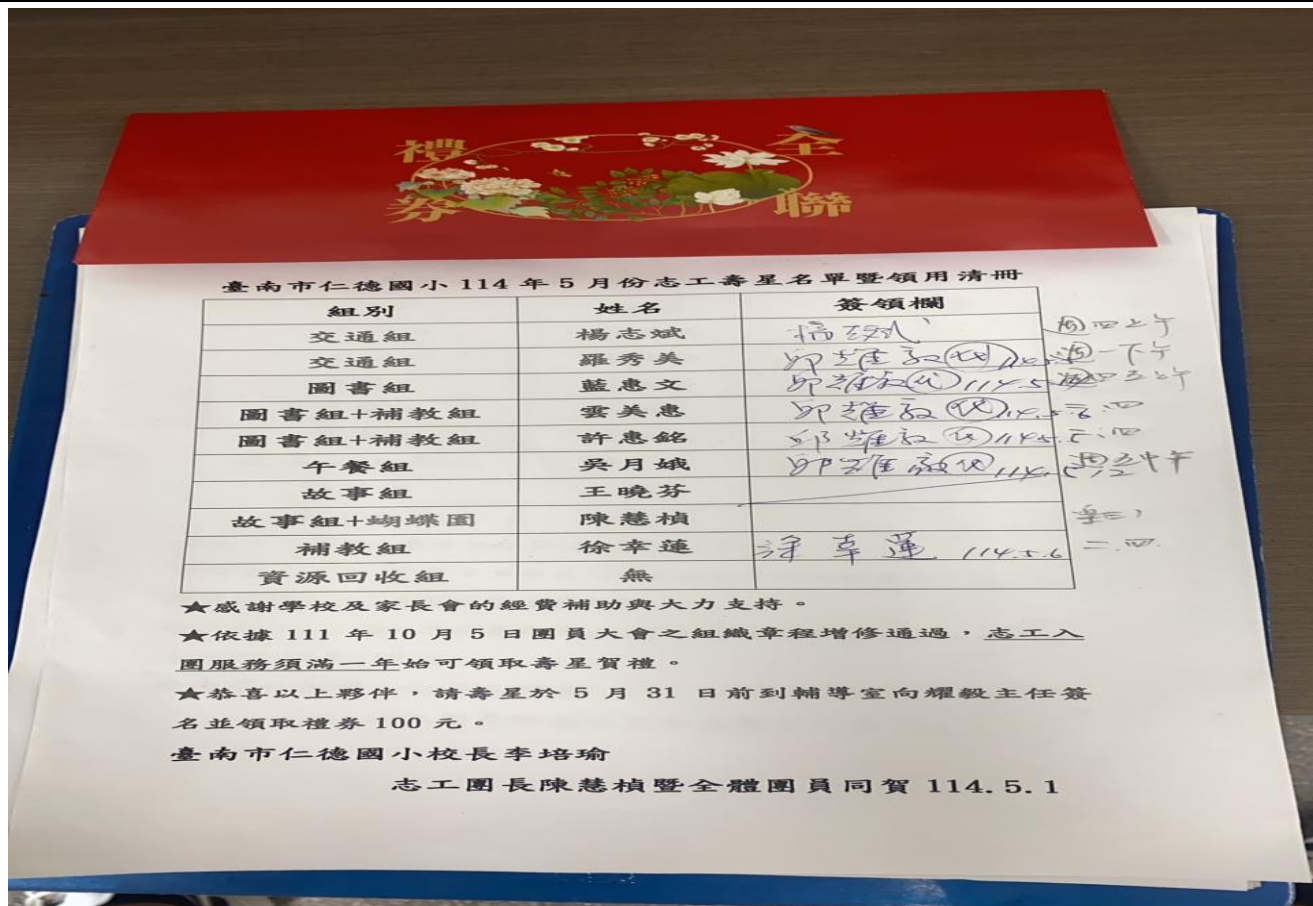 禮 全
券 聯
臺南市仁德國小 114 年 5 月份志工壽星名單暨領用清冊
組別 姓名 簽領欄
交通組 楊志斌 四上午
交通組 羅秀美 代 一下午
圖書組 藍惠文 代 114.5
圖書組+補教組 雲美惠 代 二.四
圖書組+補教組 許惠銘 代 114.5 二.四
午餐組 吳月娥 代 114.
故事組 王曉芬
故事組+蝴蝶園 陳慧楨
補教組 徐幸蓮 徐幸蓮 114.5.6 二.四.
資源回收組 無
★感謝學校及家長會的經費補助與大力支持。
★依據 111 年 10 月 5 日團員大會之組織章程增修通過,志工入
團服務須滿一年始可領取壽星賀禮。
★恭喜以上夥伴,請壽星於 5 月 31 日前到輔導室向耀毅主任簽
名並領取禮券 100 元。
臺南市仁德國小校長李培瑜
志工團長陳慧楨暨全體團員同賀 114.5.1